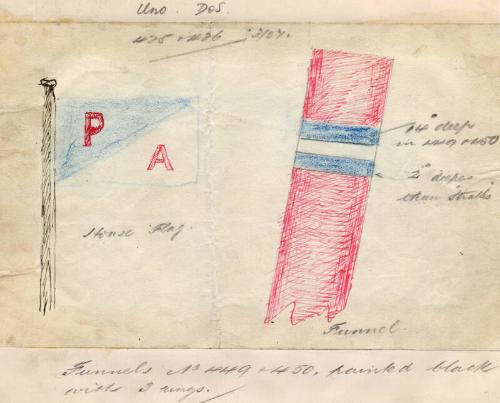 Uno. Dos.
425 & 426
P
A
House Flag.
14" deep
in 449 & 450
2" deeper
than Straths
Funnel
Funnels Nº 449 & 450, painted black
with 3 rings.